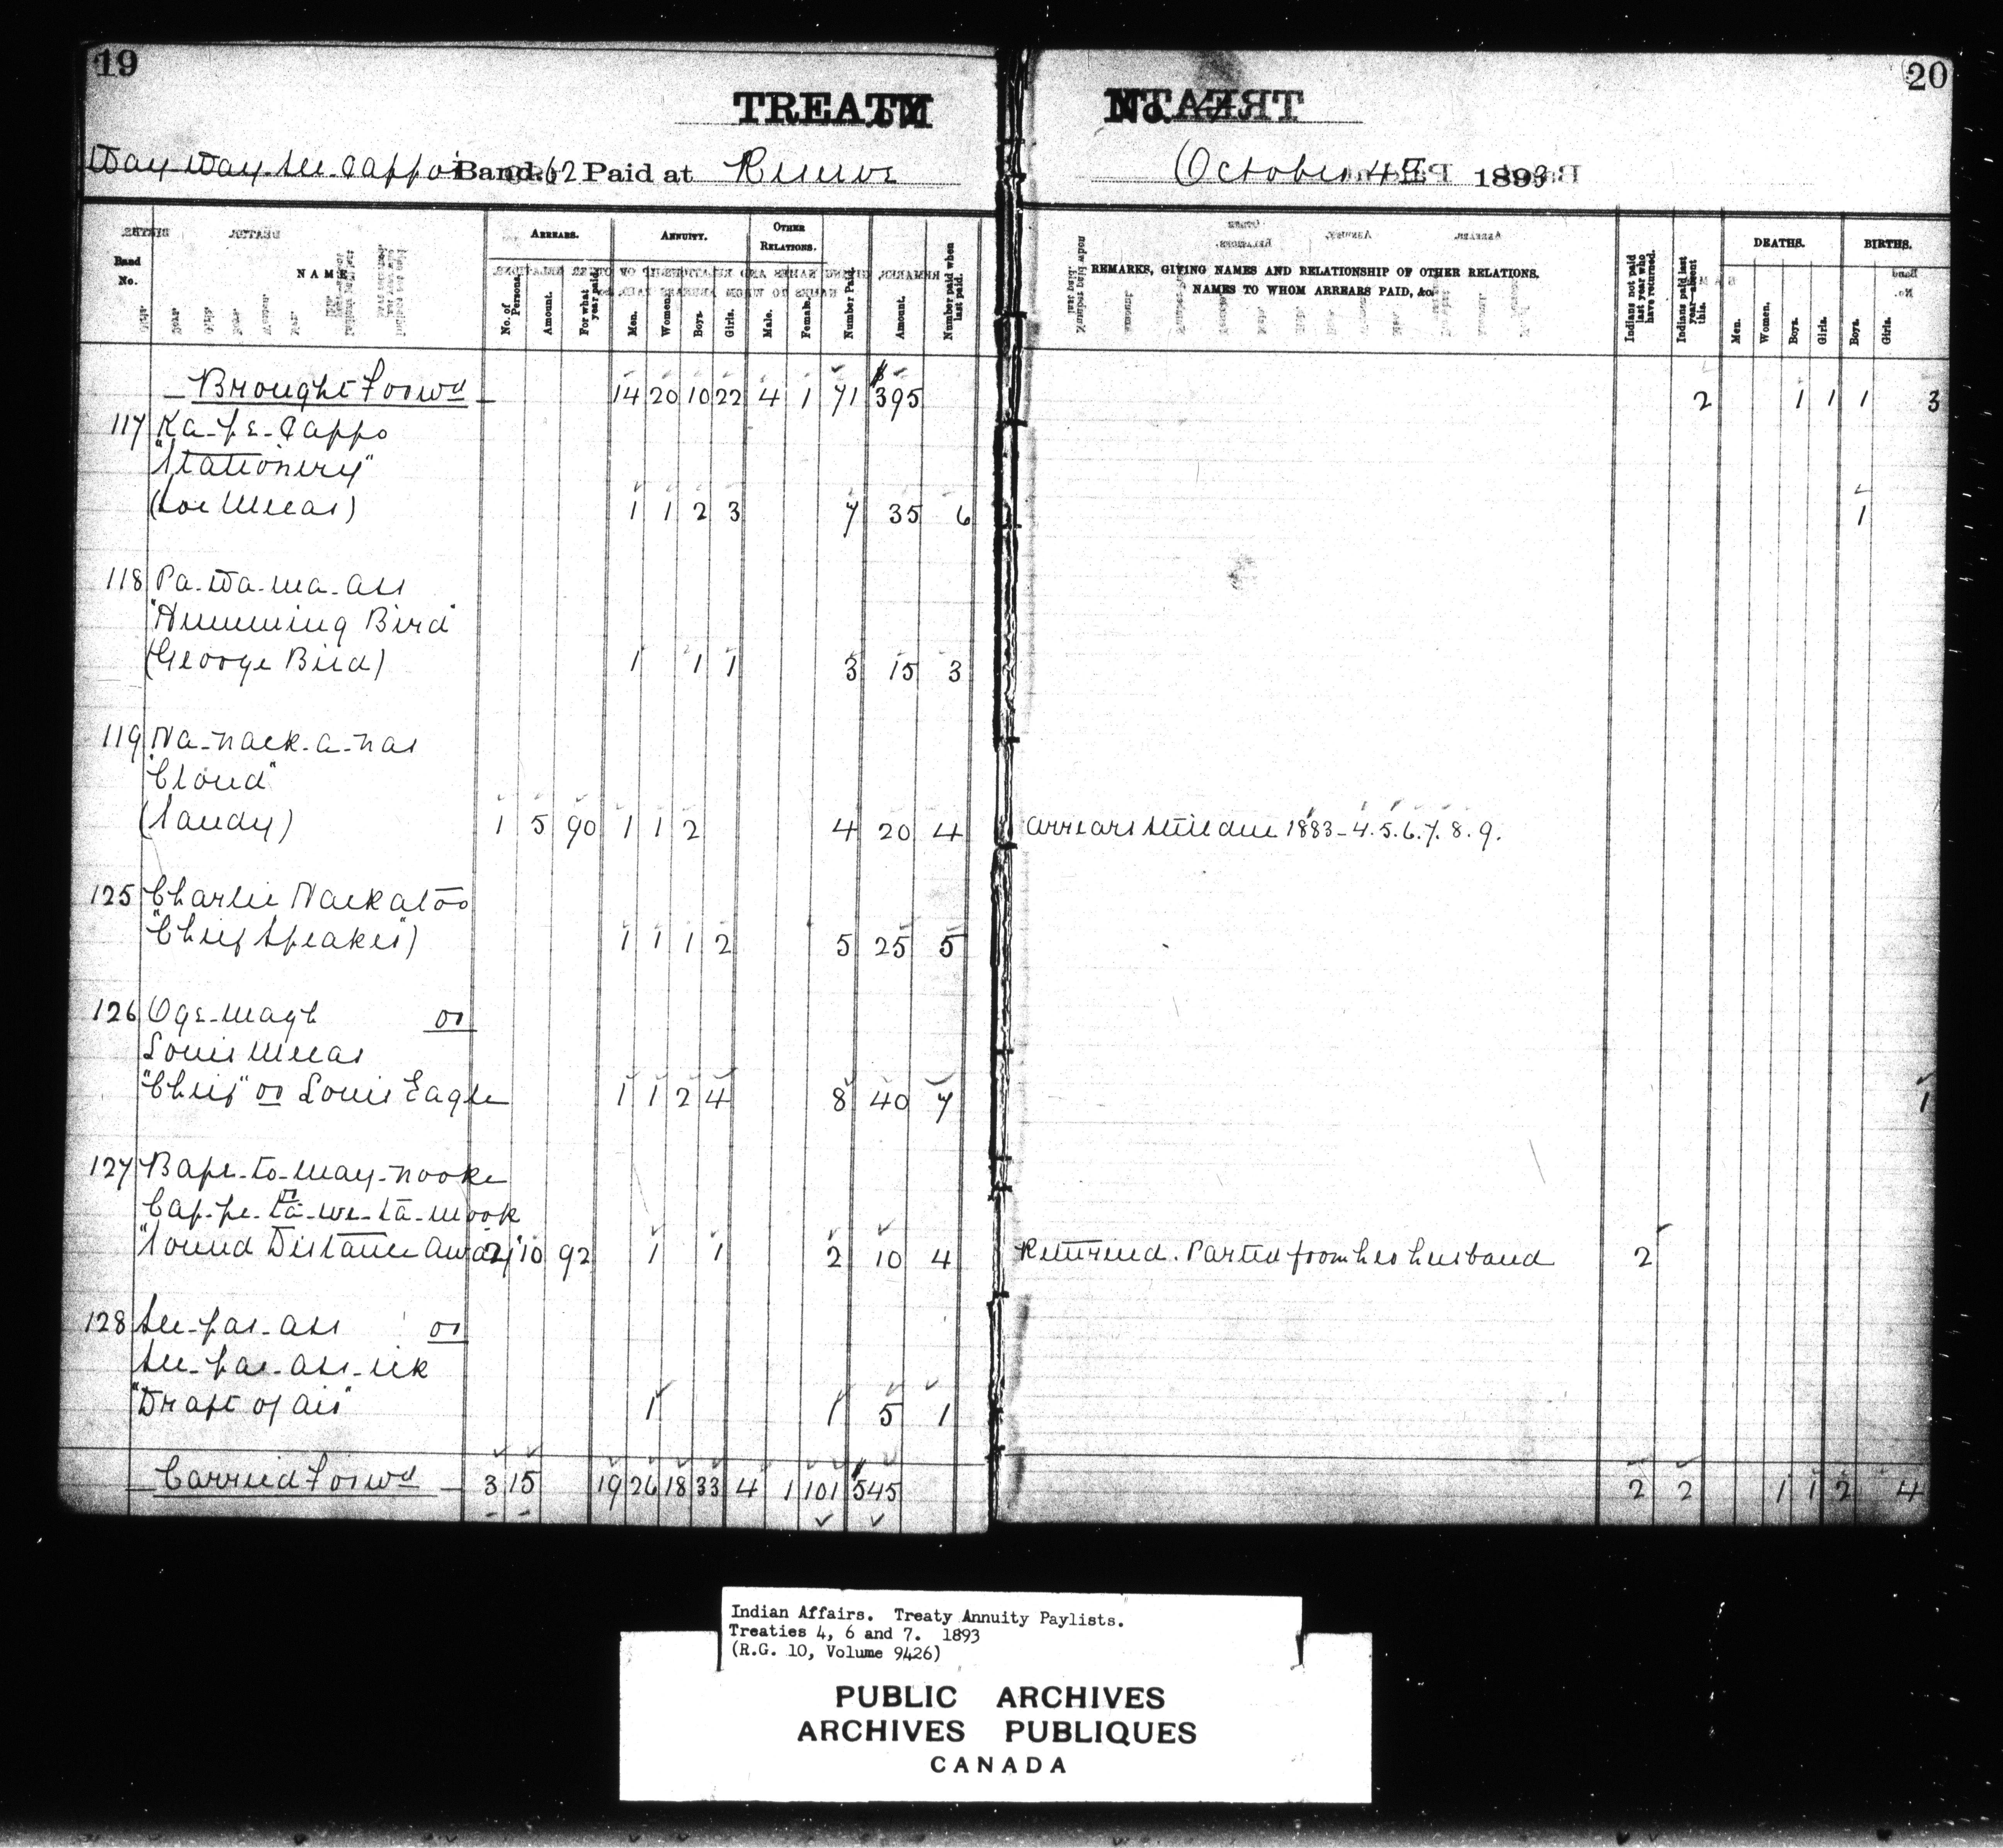 19
20
TREATY
No. 4
Way-Way-See-Cappo's Band. 62 Paid at Reserve
October 4th 1893
Band No.
NAME
ARREARS.
No. of Persons.
Amount.
For what year paid.
ANNUITY.
Men.
Women.
Boys.
Girls.
OTHER RELATIONS.
Male.
Female.
Number Paid.
Amount.
Number paid when last paid.
REMARKS, GIVING NAMES AND RELATIONSHIP OF OTHER RELATIONS,
NAMES TO WHOM ARREARS PAID, &c.
Indians not paid last year who have returned.
Indians paid last year—absent this.
DEATHS.
Men.
Women.
Boys.
Girls.
BIRTHS.
Boys.
Girls.
Brought Forwd 14 20 10 22 4 1 71 $395 2 1 1 1 3
117 Ka-pe-Cappo
"Stationery"
(Joe Mecas) 1 1 2 3 7 35 6 1
118 Pa-wa-ma-ass
"Humming Bird"
(George Bird) 1 1 1 3 15 3
119 Na-nack-a-nas
"Cloud"
(Sandy) 1 5 90 1 1 2 4 20 4 Arrears still due 1883-4.5.6.7.8.9.
125 Charlie Nackatoo
"Chief Speaker") 1 1 1 2 5 25 5
126 Oge-magh or
Louis Mecas
"Chief" or Louis Eagle 1 1 2 4 8 40 7 1
127 Bape-to-may-nooke
or
Cap-pe-ta-we-ta-mook
"Sound Distance Away" 2 10 92 1 1 2 10 4 Returned. Parted from her husband 2
128 See-pas-ass or
See-pas-ass-sik
"Draft of Air" 1 1 5 1
Carried Forwd 3 15 19 26 18 33 4 1 101 $545 2 2 1 1 2 4
Indian Affairs. Treaty Annuity Paylists.
Treaties 4, 6 and 7. 1893
(R.G. 10, Volume 9426)
PUBLIC ARCHIVES
ARCHIVES PUBLIQUES
CANADA